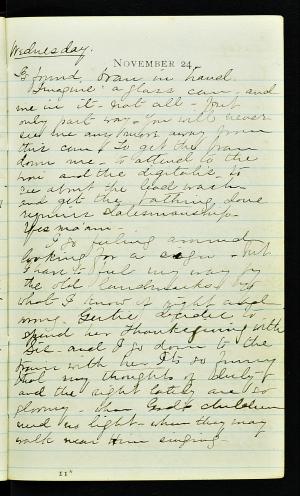 Wednesday.
NOVEMBER 24
found, pan in hand.
Imagine a glass can - and
me in it - not all - just
only part way. You will never
see me any more away from
this can. To get the pan
down me - to attend to the
and the digitalis to
see about the lead wash
and get the bathing done
requires statesmanship.
Yes ma'am.
I go feeling around
looking for a sign - but
I have to feel my way by
the old landmarks by
what I know of right and
wrong. Gertie decided to
spend her Thanksgiving with
Sis - and I go down to the
train with her. It's so funny
that my thoughts of duty
and the right lately are so
gloomy - when God's children
need his light - when they may
walk near Him singing.